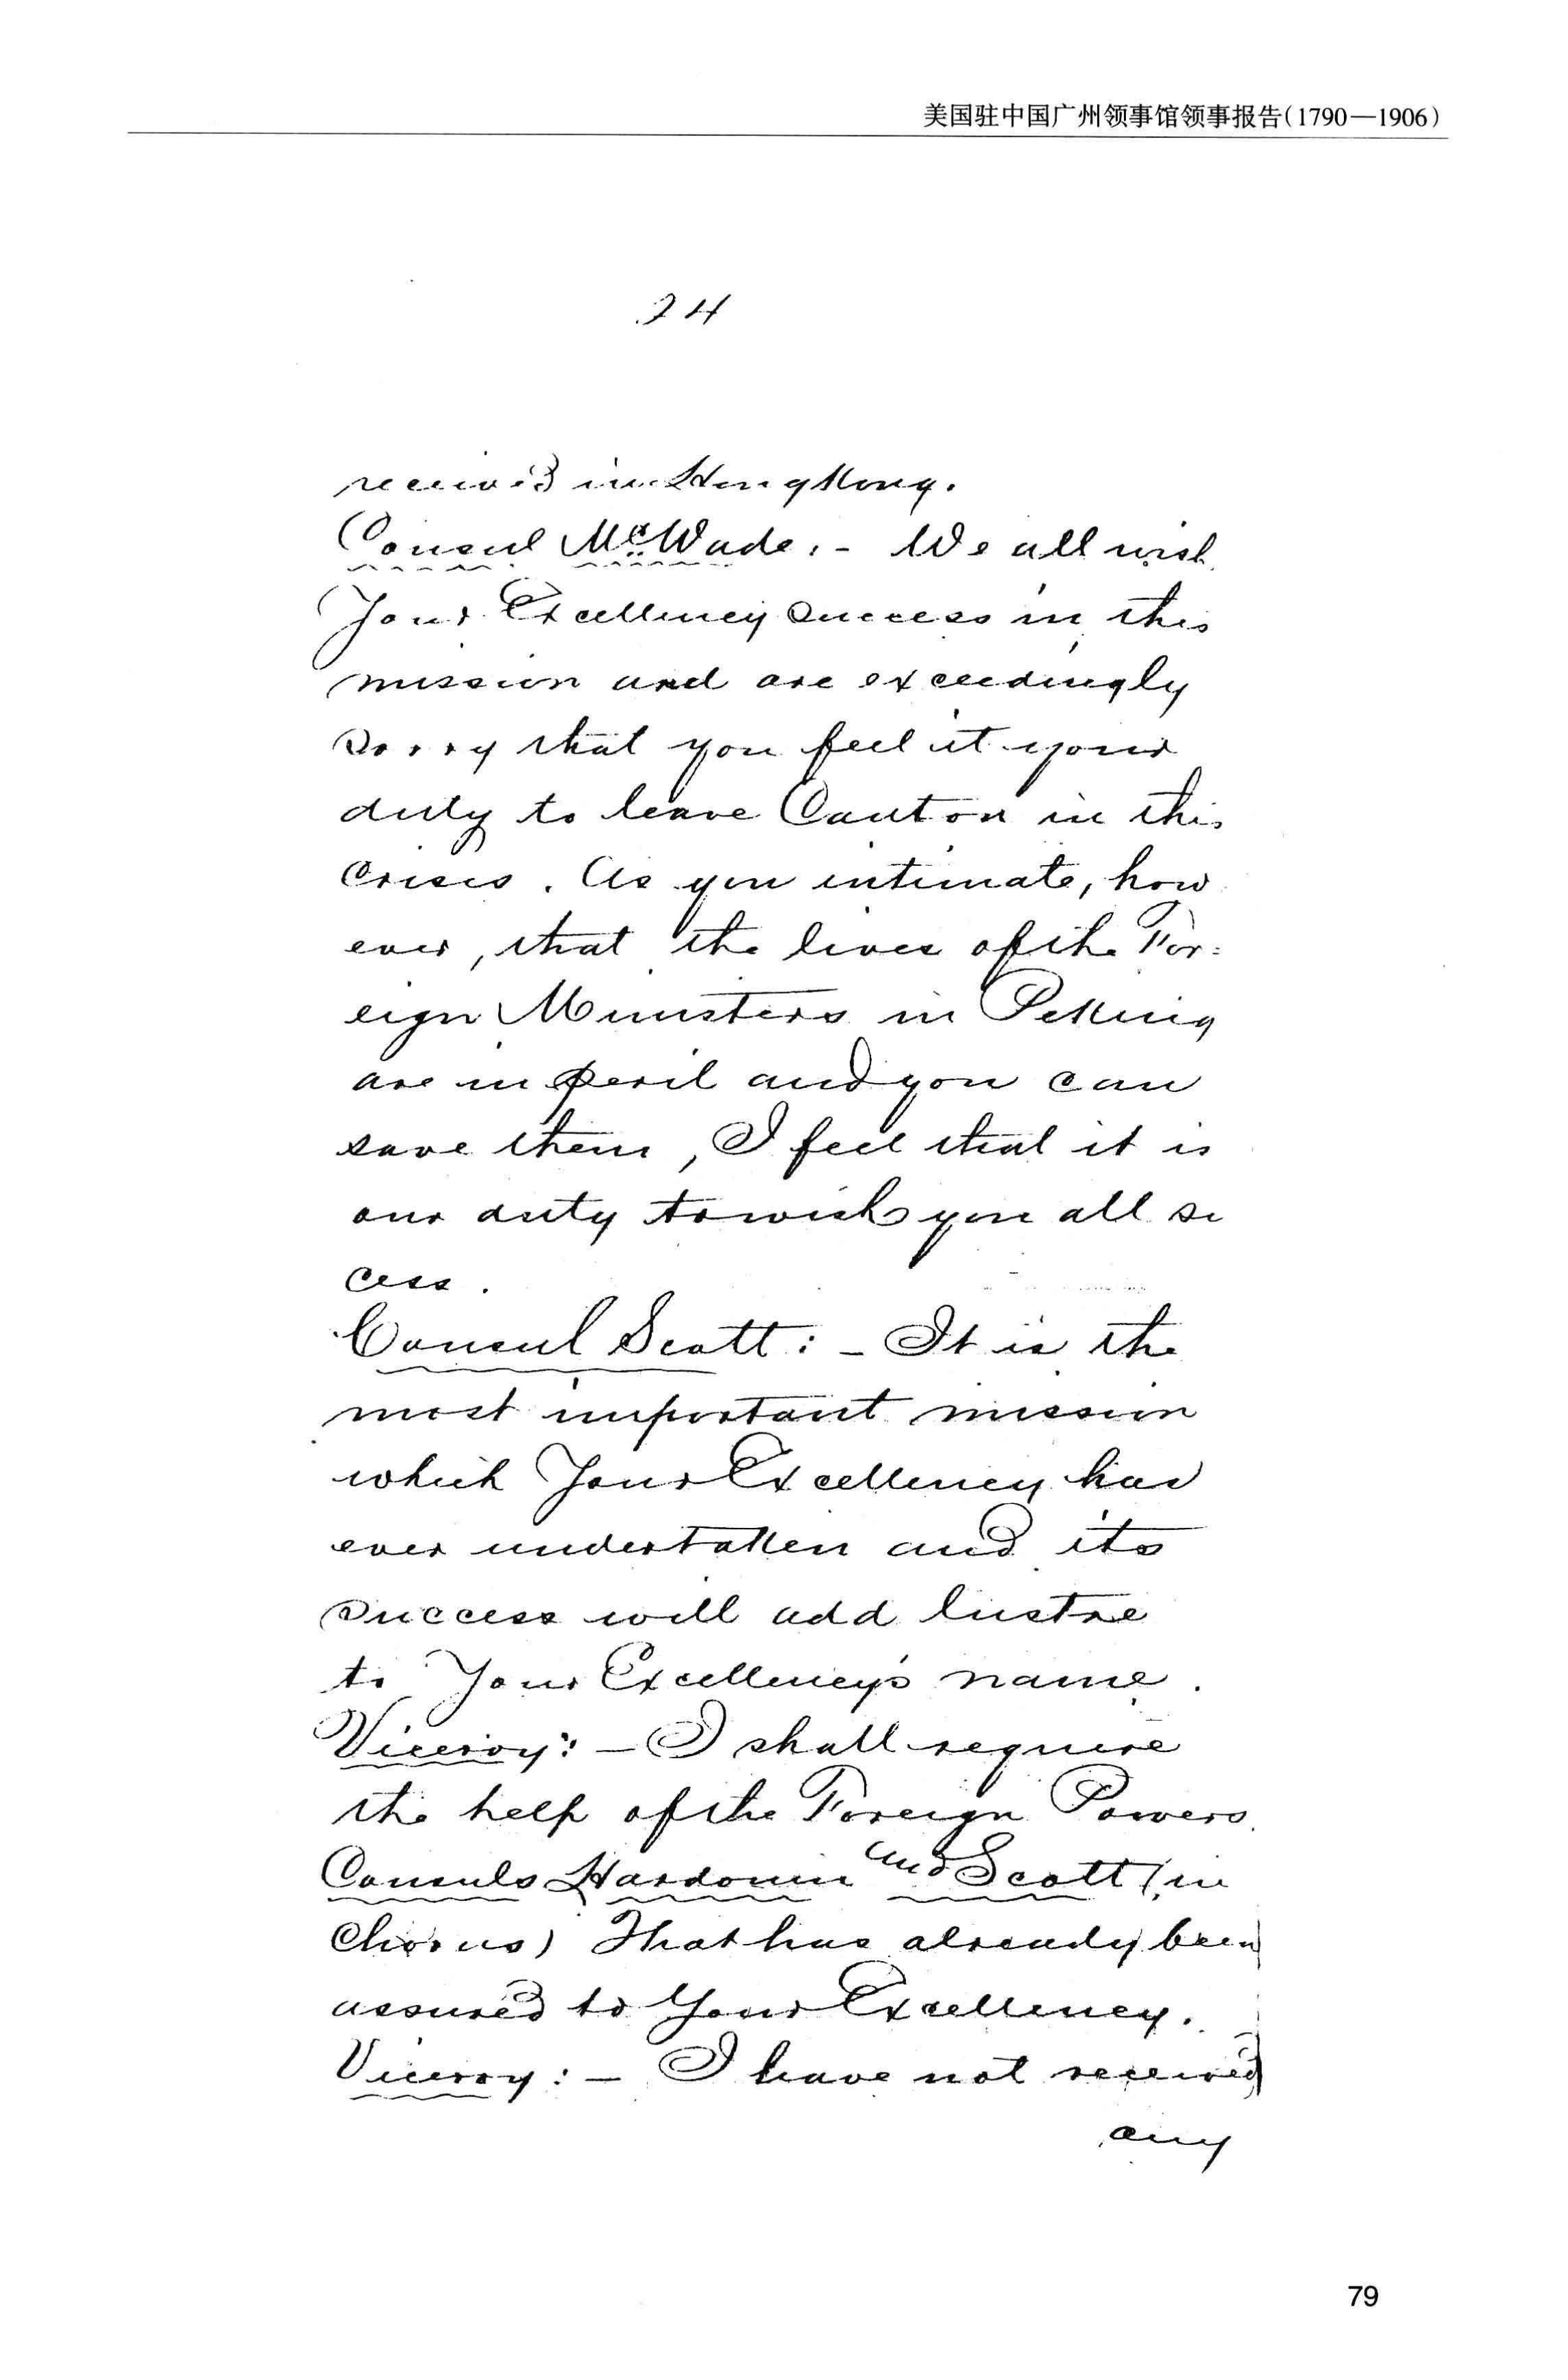 美国驻中国广州领事馆领事报告(1790—1906)
24
received in HongKong.
Consul McWade:- We all wish
Your Excellency success in this
mission and are exceedingly
sorry that you feel it your
duty to leave Canton in this
crisis. As you intimate, how
ever, that the lives of the For=
eign Ministers in Peking
are in peril and you can
save them, I feel that it is
our duty to wish you all su
cess.
Consul Scott:- It is the
most important mission
which Your Excellency has
ever undertaken and its
success will add lustre
to Your Excellency's name.
Viceroy:- I shall require
the help of the Foreign Powers.
Consuls Hardouin and Scott (in
Chorus) That has already been
assured to Your Excellency.
Viceroy:- I have not received
any
79